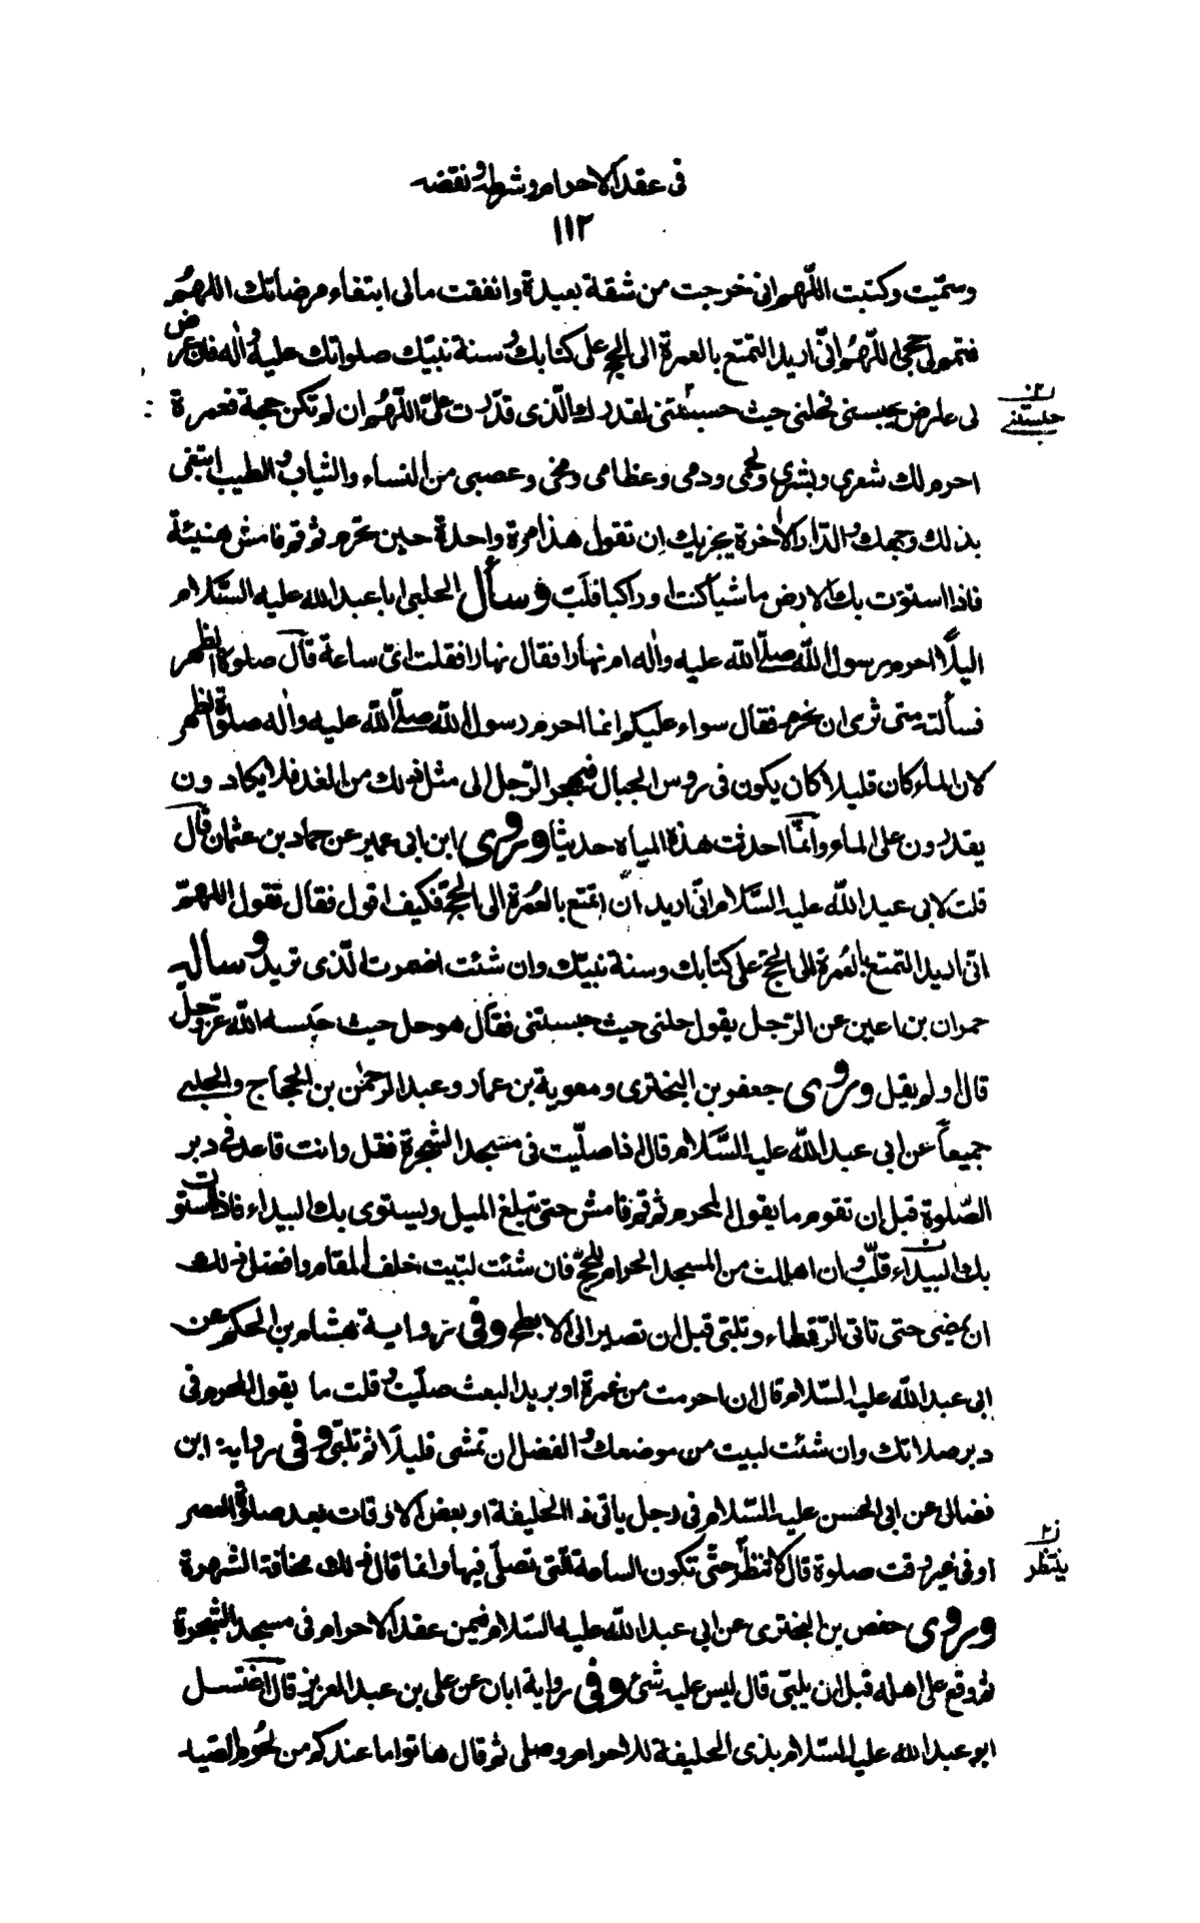 فى عقد الاحرام وشرطه ونقضه
١١٢
وسمّيت وكتبت اللّهم انى خرجت من شقة بعيدة وانفقت مالى ابتغاء مرضاتك اللهمّ
فتمم لى حجى اللّهمّ انّى اريد التمتع بالعمرة الى الحج على كتابك وسنة نبيّك صلواتك عليه واٰله فان عرض
لى عارض يحبسنى فحلنى حيث حبستنى لقدرك الّذى قدّرت علىّ اللّهمّ ان لم تكن حجة فعمرة
احرم لك شعرى وبشرى ولحمى ودمى وعظامى ومخى وعصبى من النساء والثياب والطيب ابتغى
بذلك وجهك والدّار الاٰخرة يجزيك ان تقول هذا مرة واحدة حين تحرم ثم قم فامش هنيئة
فاذا استوت بك الارض ماشيا كنت او راكبا فلبّ وسأل الحلبى ابا عبد الله عليه السّلام
اليلًا احرم رسول اللّه صلّى اللّه عليه واٰله ام نهارا فقال نهارا فقلت اىّ ساعة قال صلوة الظهر
فسألته متى ترى ان نحرم فقال سواء عليكم انما احرم رسول اللّه صلّى اللّه عليه واٰله صلوة الظهر
لان الماء كان قليلا كان يكون فى رؤس الجبال فيهجر الرّجل الى مثل ذلك من الغد فلا يكادون
يقدرون على الماء وانّما احدثت هذه المياه حديثا وروى ابن ابى عمير عن حماد بن عثمان قال
قلت لابى عبد اللّه عليه السّلام انّى اريد ان اتمتع بالعمرة الى الحجّ فكيف اقول فقال تقول اللهمّ
انّى اريد التمتع بالعمرة الى الحجّ على كتابك وسنة نبيّك وان شئت اضمرت الّذى تريد وساله
حمران بن اعين عن الرّجل يقول حلنى حيث حبستنى فقال هو حل حيث حبسه اللّه عزّوجلّ
قال او لم يقل وروى جعفر بن البخترى ومعوية بن عمار وعبد الرّحمٰن بن الحجاج والحلبى
جميعاً عن ابى عبد اللّه عليه السّلام قال اذا صلّيت فى مسجد الشجرة فقل وانت قاعد فى دبر
الصّلوة قبل ان تقوم ما يقول المحرم ثم قم فامش حتى تبلغ الميل ويستوى بك البيداء فاذا استوت
بك البيداء فلبّ وان اهللت من المسجد الحرام للحجّ فان شئت لبّيت خلف المقام وافضل ذلك
ان يمضى حتى تاتى الرّقطاء وتلبّى قبل ان تصير الى الابطح وفى رواية هشام بن الحكم عن
ابى عبد اللّه عليه السّلام قال ان احرمت من غمرة او بريد البعث صلّيت وقلت ما يقول المحرم فى
دبر صلاتك وان شئت لبيت من موضعك والفضل ان تمشى قليلًا ثم تلبّى وفى رواية ابن
فضال عن ابى الحسن عليه السّلام فى رجل ياتى ذا الحليفة او بعض الاوقات بعد صلوة العصر
او فى غير وقت صلوة قال لا تنظر حتّى تكون الساعة الّتى تصلّى فيها وانما قال ذلك مخافة الشهرة
وروى حفص بن البخترى عن ابى عبد اللّه عليه السّلام فيمن عقد الاحرام فى مسجد الشجرة
ثم وقع على اهله قبل ان يلبّى قال ليس عليه شئ وفى رواية ابان عن على بن عبد العزيز قال اغتسل
ابو عبد اللّه عليه السّلام بذى الحليفة للاحرام وصلى ثم قال هاتوا ما عندكم من لحوم الصيد
ينتظر